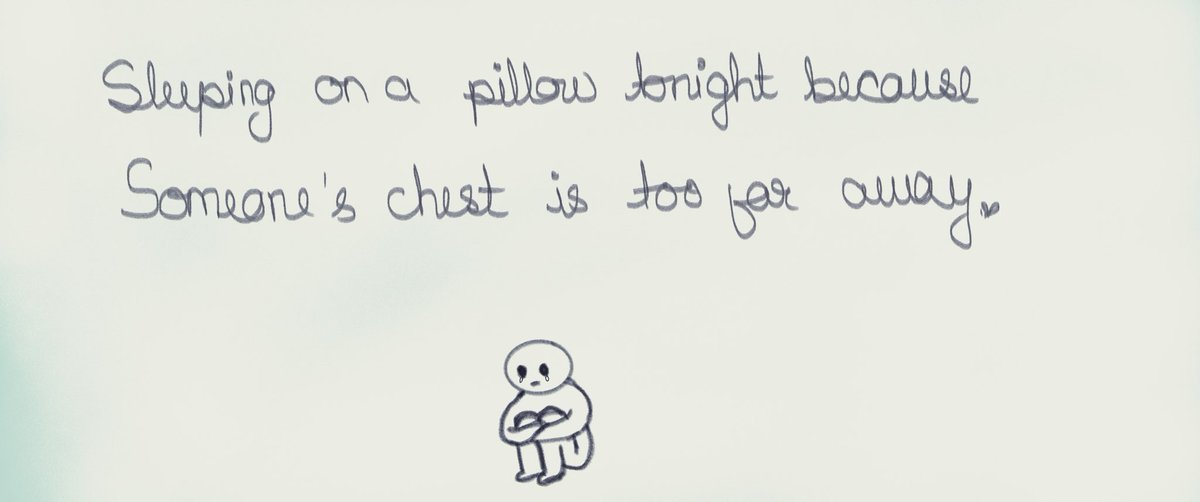 Sleeping on a pillow tonight because
Someone's chest is too far away.